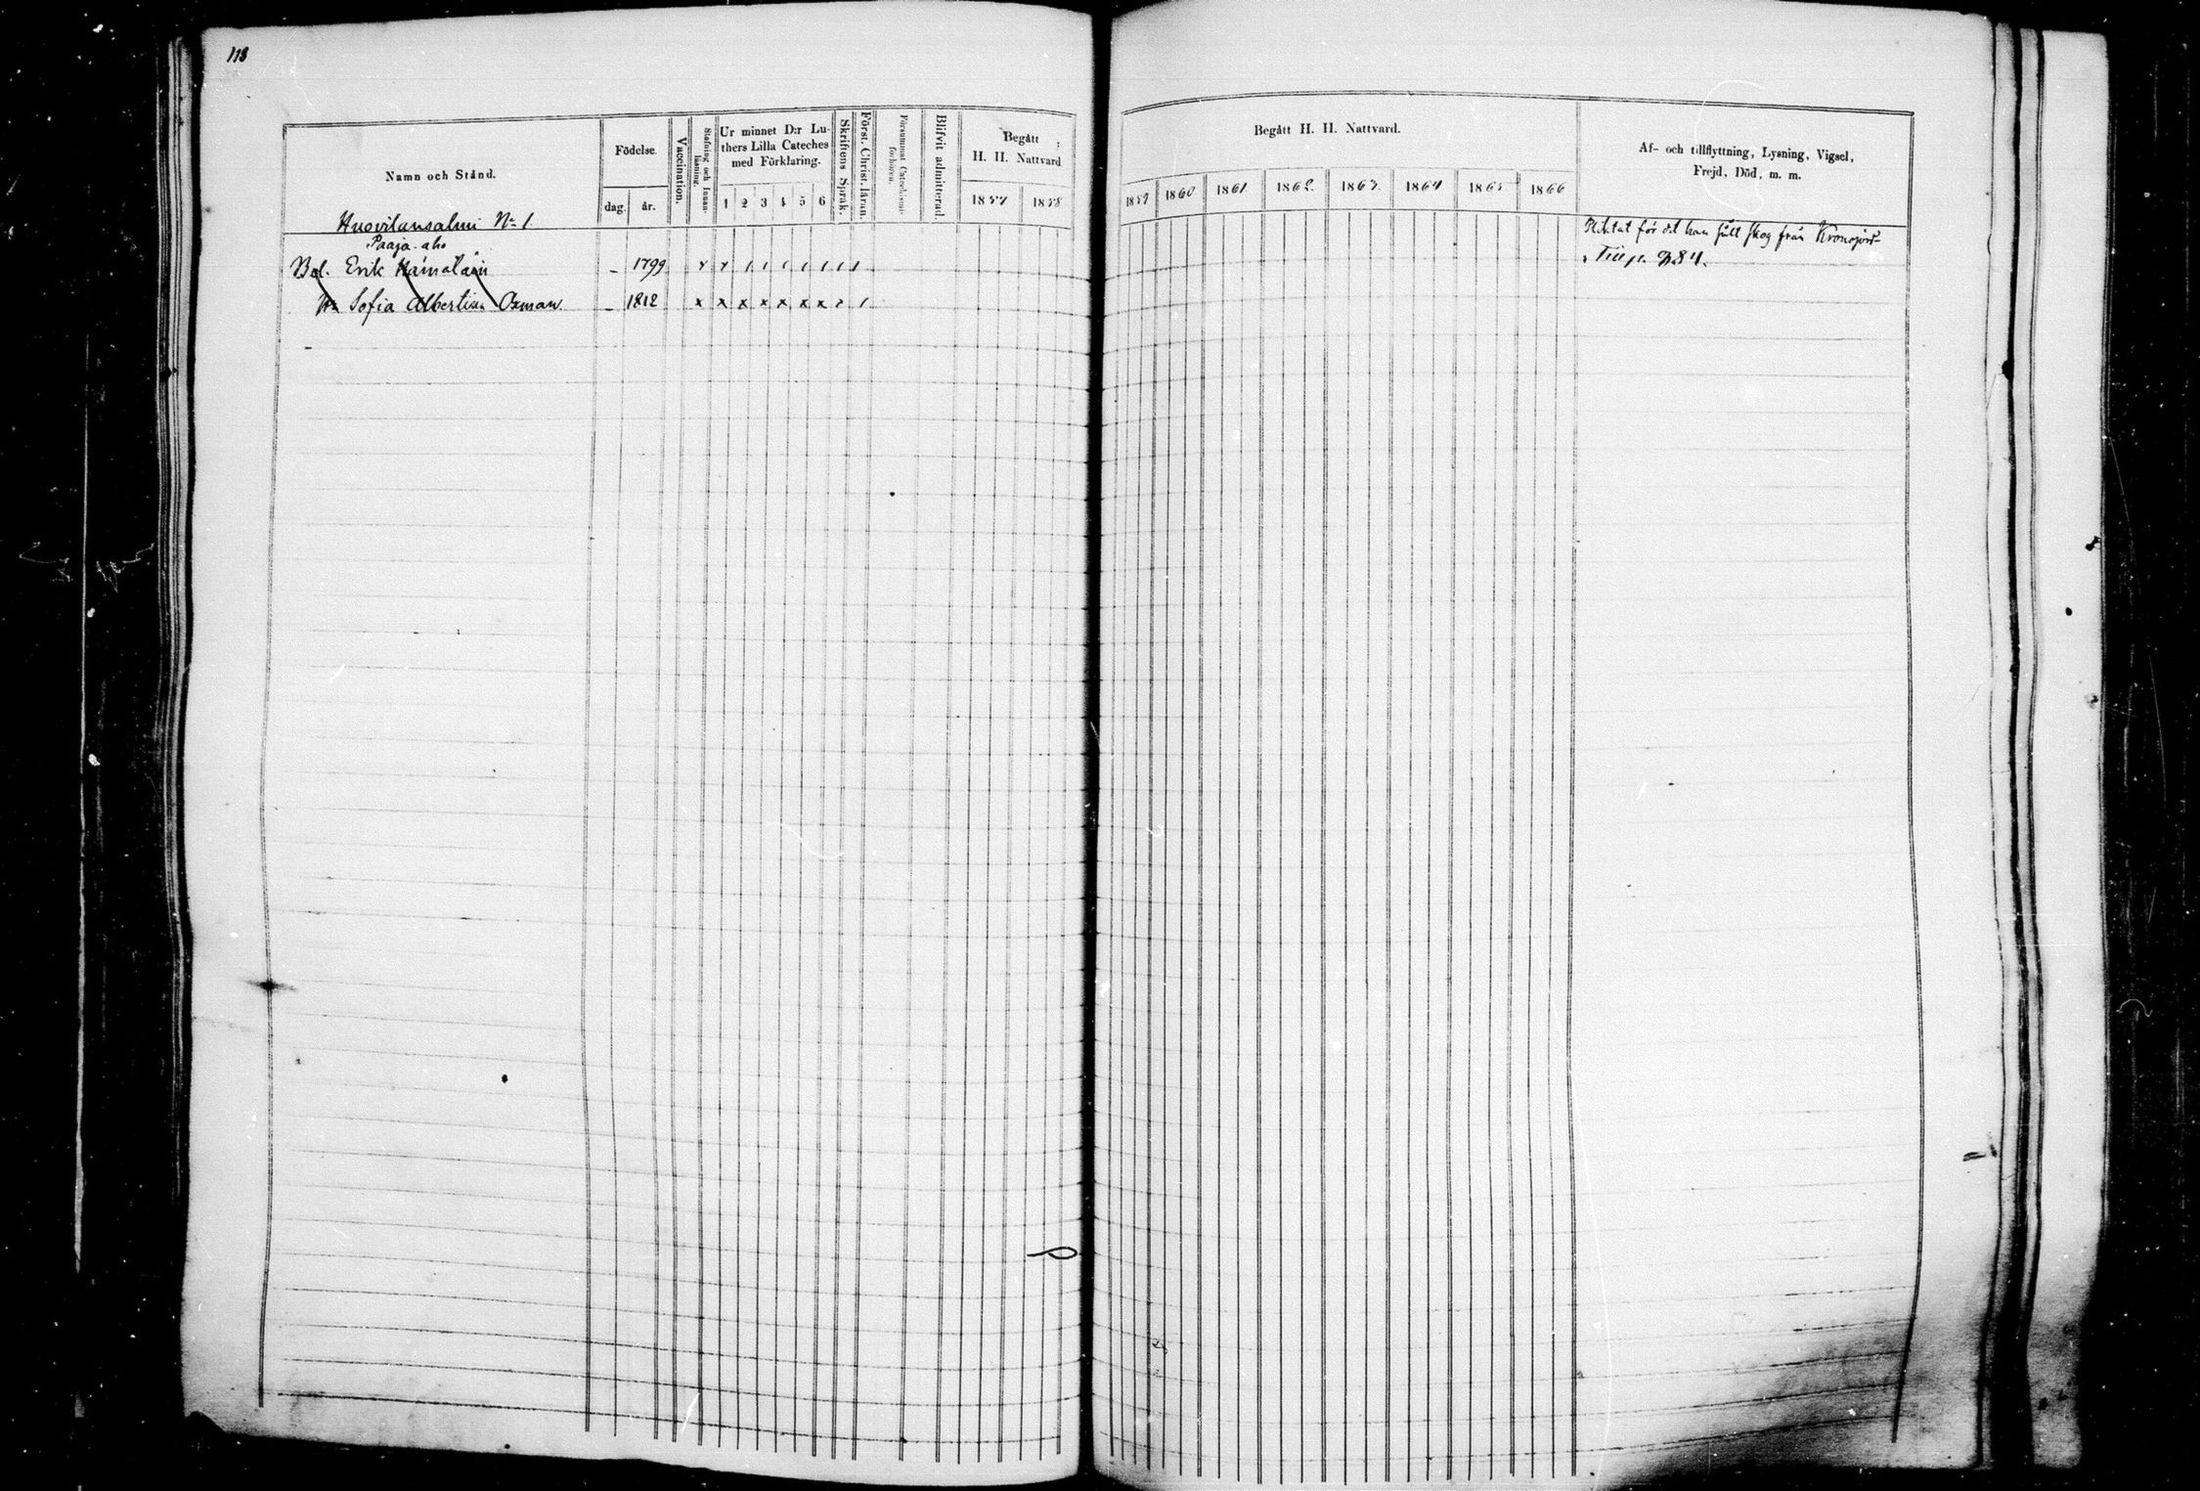 118
Namn och Stånd.
Födelse.
dag.
år.
Vaccination.
Stafning och Innan-
läsning.
Ur minnet D:r Lu-
thers Lilla Cateches
med Förklaring.
1 2 3 4 5 6
Skriftens Språk.
Först. Christ. läran.
Försummat Catechismi-
förhören.
Blifvit admitterad.
Begått
H. H. Nattvard
1857 1858
Huovilansalmi No 1.
Paaja-aho
Erik Hämäläin - 1799
Sofia Albertina Oxman. - 1812
Begått H. H. Nattvard.
1859 1860 1861 1862 1863 1864 1865 1866
Af- och tillflyttning, Lysning, Vigsel,
Frejd, Död, m. m.
för det han fält skog från